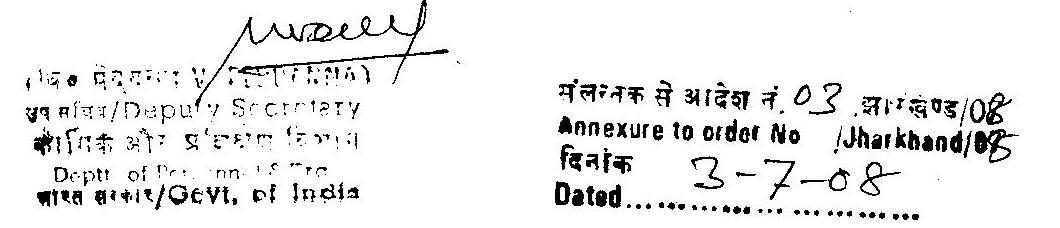 उप सचिव/Deputy Secretary
कार्मिक और प्रशिक्षण विभाग
Deptt. of
भारत सरकार/Govt. of India
संलग्नक से आदेश नं. 03 झारखण्ड/08
Annexure to order No /Jharkhand/08
दिनांक 3-7-08
Dated....................